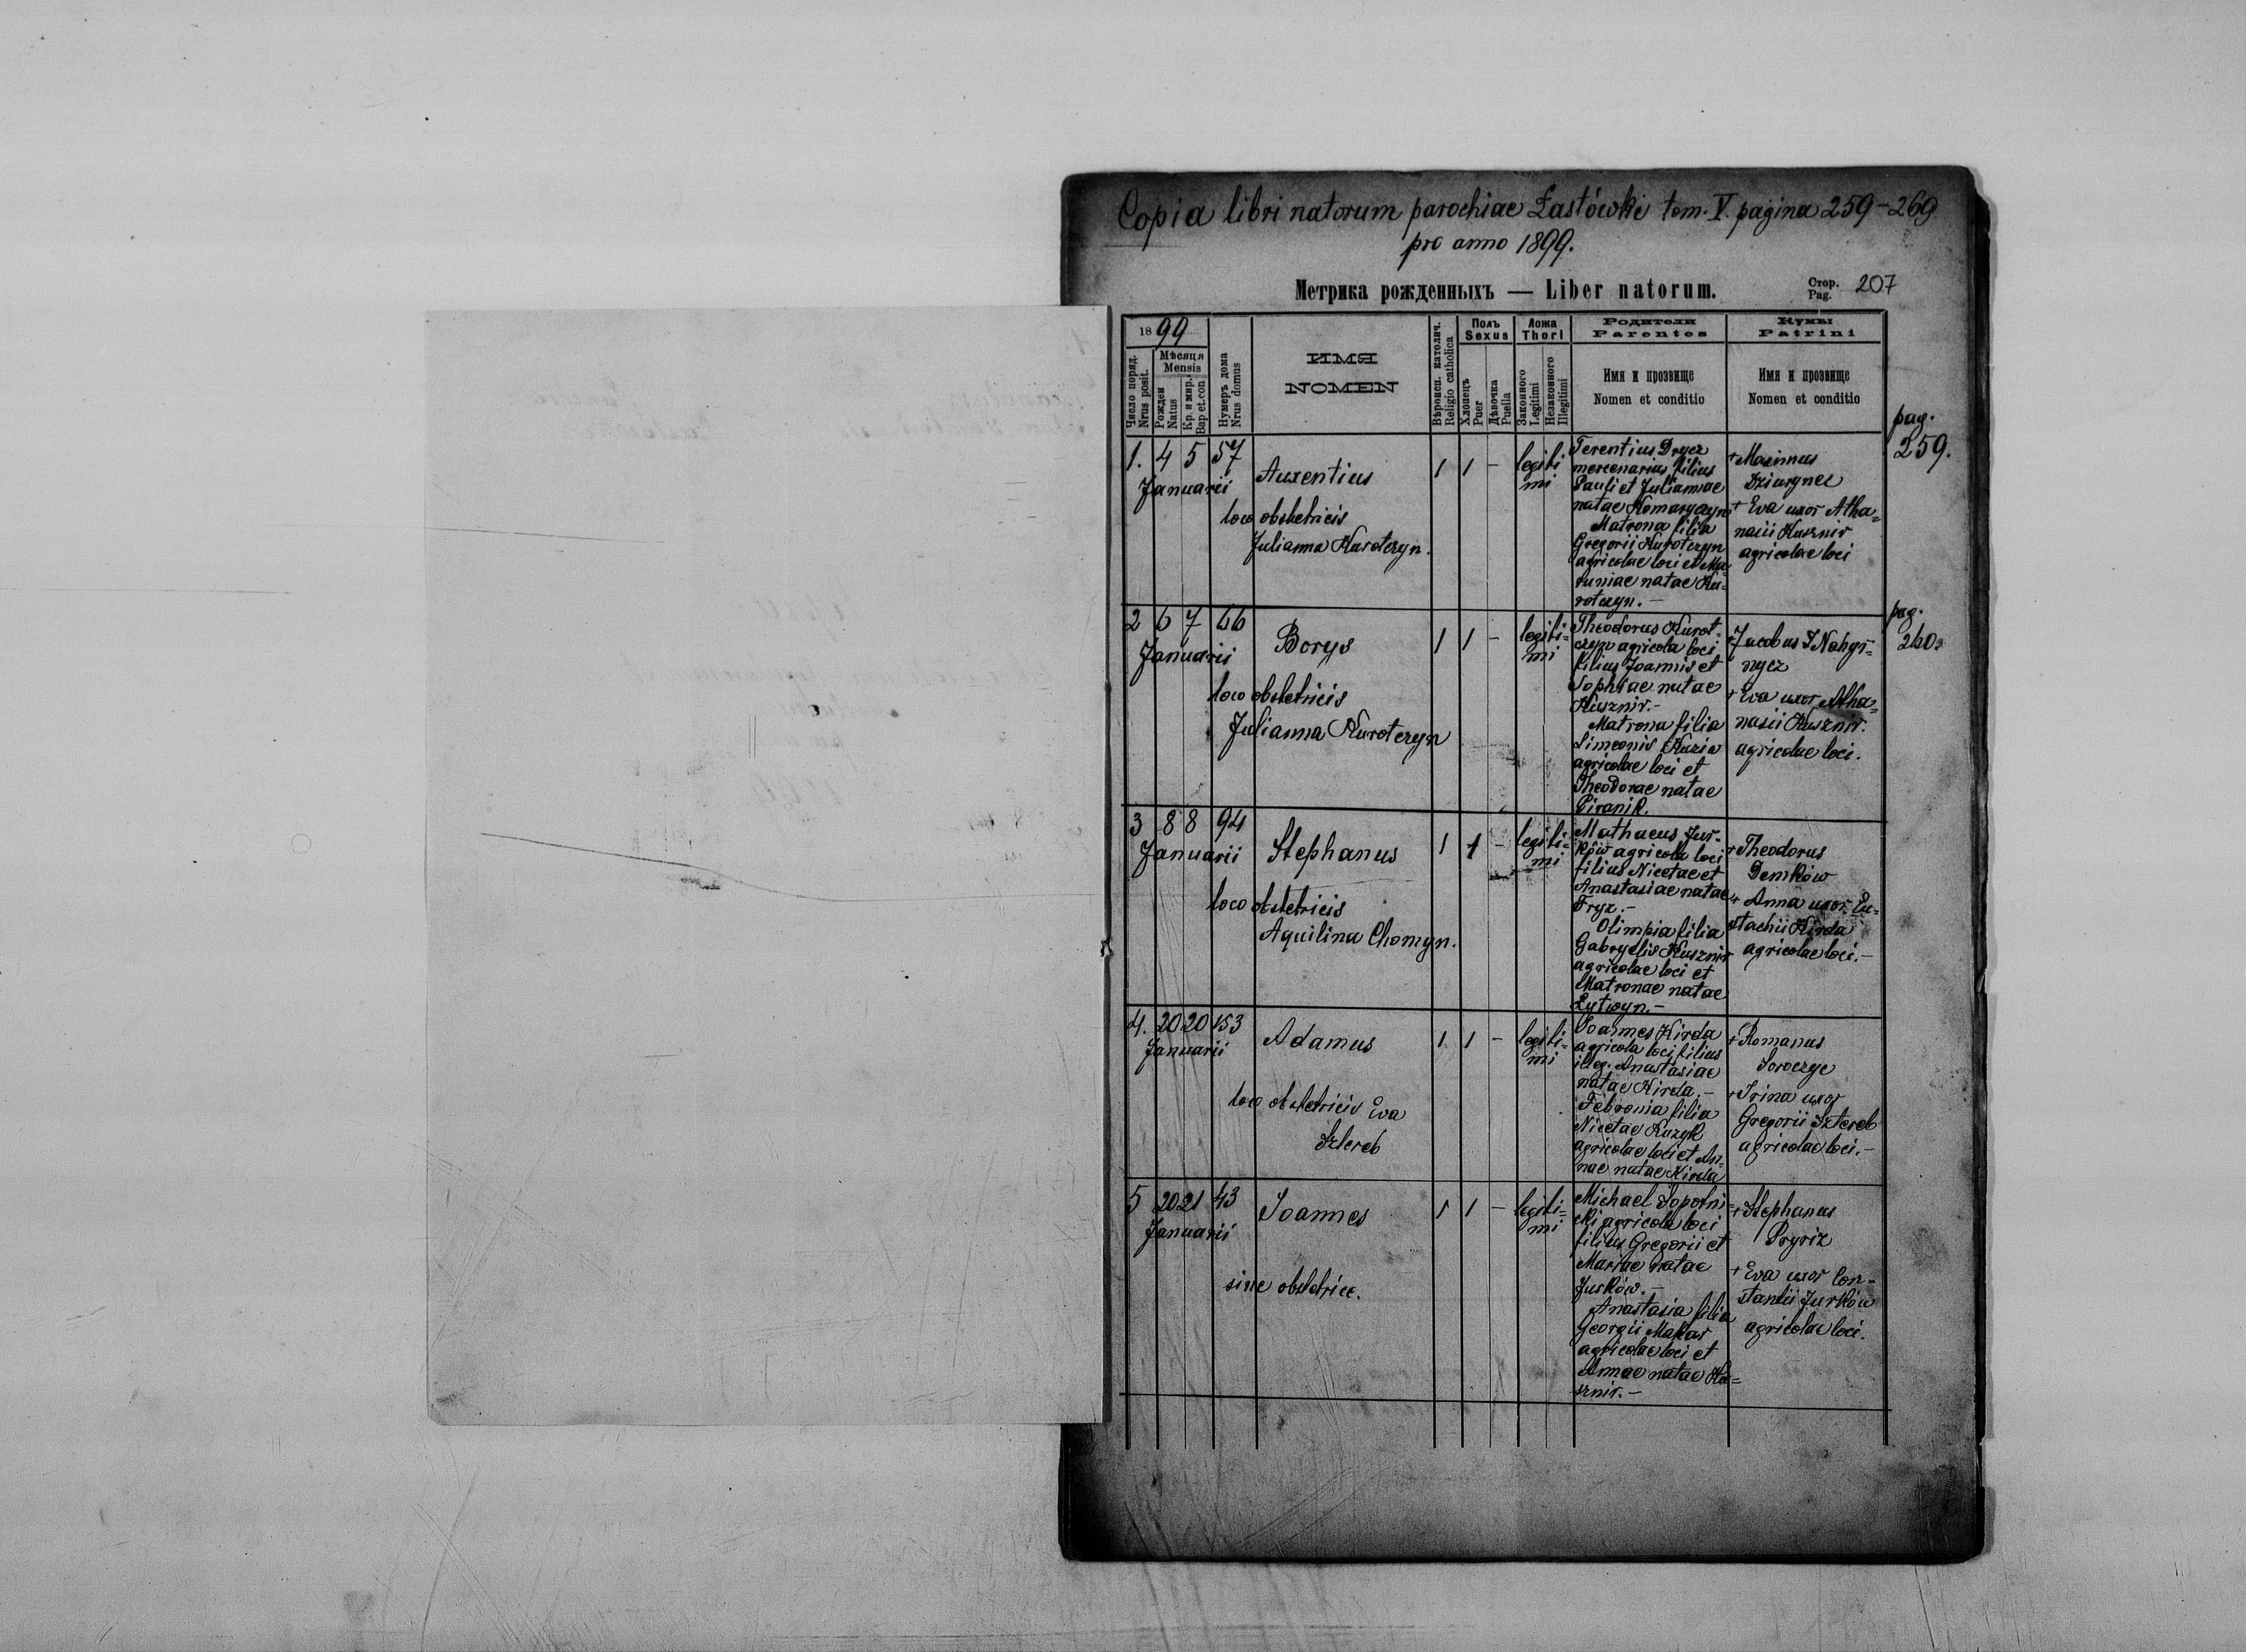 Copia libri natorum parochiae Łastówki tom. V. pagina 259-269
pro anno 1899.
Метрика рожденныхъ — Liber natorum.
Стор.
Pag. 207
1899
Число поряд.
Nrus posit.
Мѣсяця
Mensis
Рожден
Natus
Кр. и мир.
Bap et.con.
Нумеръ дома
Nrus domus
ИМЯ
NOMEN
Вѣроисп. католич.
Religio catholica
Полъ
Sexus
Хлопецъ
Puer
Дѣвочка
Puella
Ложа
Thori
Законного
Legitimi
Незаконного
Illegitimi
Родители
Parentes
Имя и прозвище
Nomen et conditio
Кумы
Patrini
Имя и прозвище
Nomen et conditio
pag.
259.
1. 4 5 57
Januarii
Auxentius
loco obstetricis
Julianna Kurotczyn.
1 1 - legiti
mi
Terentius Drycz
mercenarius filius
Pauli et Juliannae
natae Komaryczyn
Matrona filia
Gregorii Kurotczyn
agricolae loci et Ma
runiae natae Ku-
rotczyn.-
+ Maximus
Dziurynec
+ Eva uxor Atha=
nasii Kusznir
agricolae loci
pag.
260.
2 6 7 66
Januarii
Borys
loco obstetricis
Julianna Kurotczyn
1 1 - legiti=
mi
Theodorus Kurot-
czyn agricola loci
filius Joannis et
Sophiae natae
Kusznir.-
Matrona filia
Simeonis Kuziv
agricolae loci et
Theodorae natae
Piranik.
+ Jacobus Nahyr=
nycz
+ Eva uxor Atha=
nasii Kusznir.
agricolae loci.
3 8 8 94
Januarii
Stephanus
loco obstetricis
Aquilina Chomyn.
1 1 - legiti=
mi
Mathaeus Jur-
ków agricola loci
filius Nicetae et
Anastasiae natae
Fryz.-
Olimpia filia
Gabryelis Kusznir
agricolae loci et
Matronae natae
Łytwyn.-
+ Theodorus
Demków
+ Anna uxor Eu=
stachii Kirda
agricolae loci.-
4. 20 20 153
Januarii
Adamus
loco obstetricis Eva
Sztereb
1 1 - legiti=
mi
Joannes Kirda
agricola loci filius
illeg. Anastasiae
natae Kirda.-
Febronia filia
Nicetae Kuzyk
agricolae loci et An=
nae natae Kirda
+ Romanus
+ Irina uxor
Gregorii Sztereb
agricolae loci.-
5 20 21 43
Januarii
Joannes
sine obstetrice.
1 1 - legiti=
mi
Michael Sopotni=
cki agricola loci
filius Gregorii et
Mariae natae
Jurków.-
Anastasia filia
Georgii Makar
agricolae loci et
Annae natae Ku=
sznir.-
+ Stephanus
Pryriz
+ Eva uxor Con=
stantii Jurków
agricolae loci.